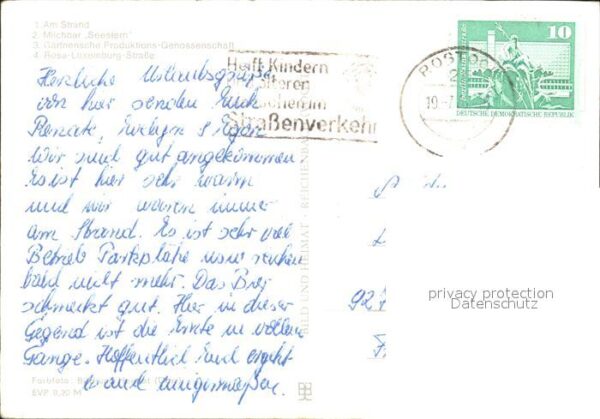 1. Am Strand
2. Milchbar „Seestern"
3. Gärtnerische Produktions-Genossenschaft
4. Rosa-Luxemburg-Straße
Helft Kindern
älteren
Menschen im
Straßenverkehr
ROSTOCK
10
DEUTSCHE DEMOKRATISCHE REPUBLIK
Herzliche Urlaubsgrüße
von hier senden Euch
Renate, Evelyn & Egon
Wir sind gut angekommen
Es ist hier sehr warm
und wir waren immer
am Strand. Es ist sehr viel
Betrieb Parkplätze usw reichen
bald nicht mehr. Das Bier
schmeckt gut. Hier in dieser
Gegend ist die Ernte in vollem
Gange. Hoffentlich Euch ergeht
es auch einigermaßen.
BILD UND HEIMAT · REICHENBACH
92
privacy protection
Datenschutz
Farbfoto:
EVP 0,20 M